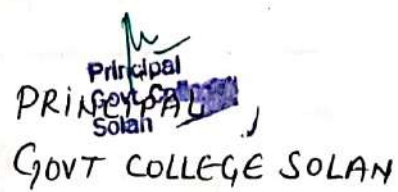 Principal
Govt.
Solan
PRINCIPAL,
GOVT COLLEGE SOLAN